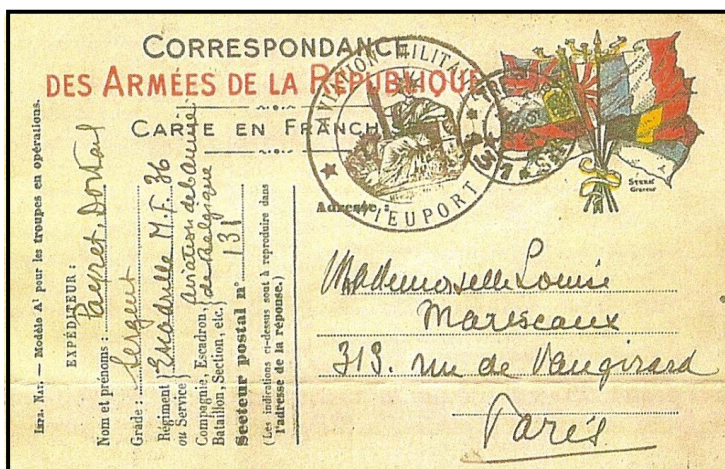 CORRESPONDANCE
DES ARMÉES DE LA RÉPUBLIQUE
CARTE EN FRANCHISE
AVIATION MILITAIRE
NIEUPORT
131
STERN
Graveur
Adresse :
Mademoiselle Louise
Marescaux
313. rue de Vaugirard
Paris
Impr. Nat. — Modèle A¹ pour les troupes en opérations.
EXPÉDITEUR :
Nom et prénoms : Payret, Dortail
Grade : Sergent
Régiment
ou Service) Escadrille M.F. 36
Compagnie, Escadron,
Bataillon, Section, etc.) aviation de l'armée
de Belgique
Secteur postal n° 131
(Les indications ci-dessus sont à reproduire dans
l'adresse de la réponse.)